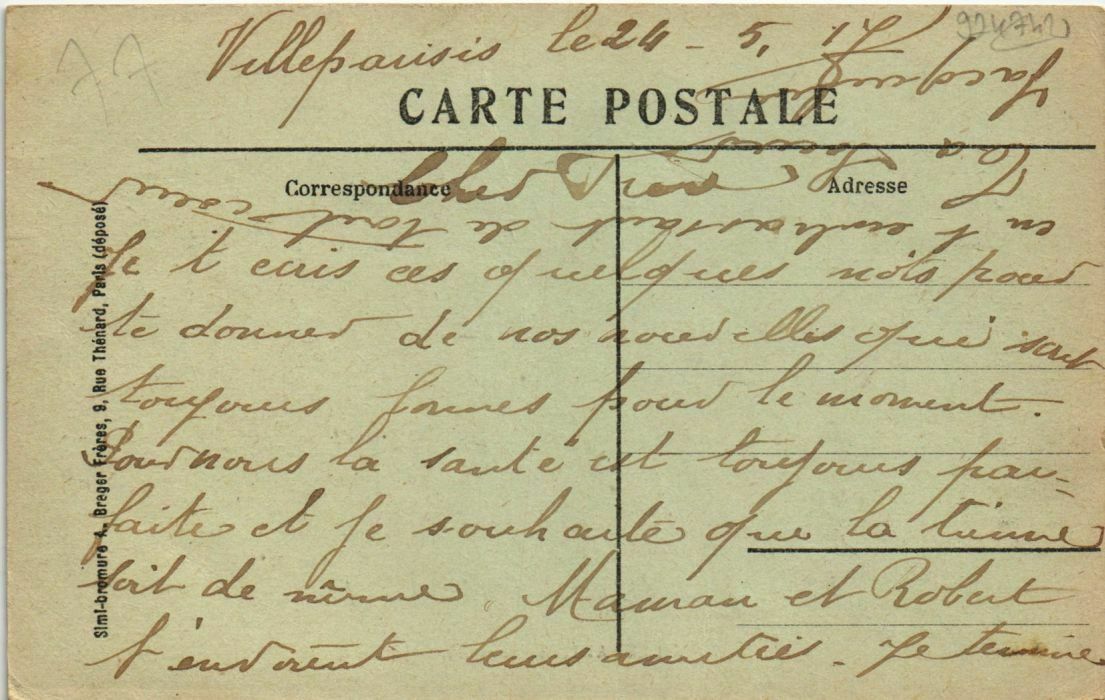 77
924742
Villeparisis le 24 - 5. 17
CARTE POSTALE
Correspondance
Adresse
Simi-bromure A. Breger Frères, 9, Rue Thénard, Paris (déposé)
Cher
Je t ecris ces quelques mots pour
te donner de nos nouvelles qui sont
toujours bonnes pour le moment.
Pour nous la santé est toujours par-
faite et je souhaite que la tienne
soit de même. Maman et Robert
t'envoient leurs amitiés. Je termine
en t embrassant de tout coeur
Ta